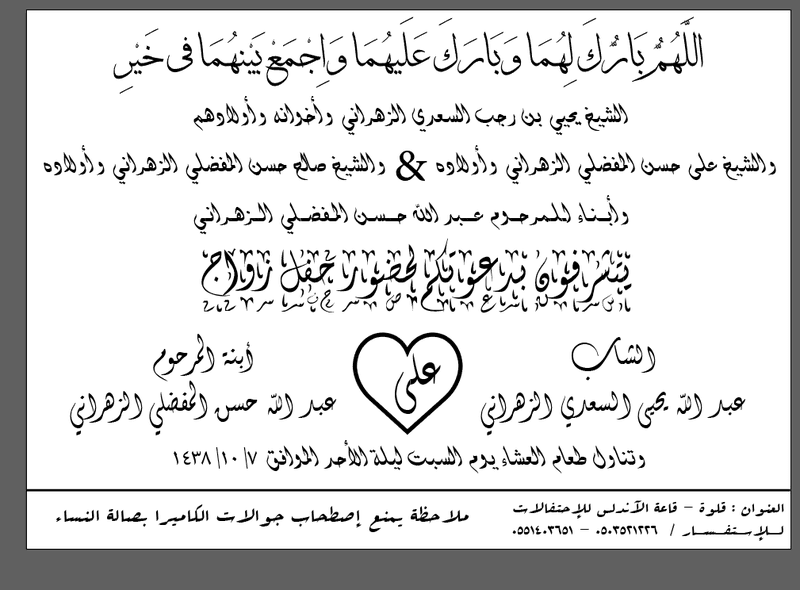 اللَّهُمَّ بَارِكْ لَهُمَا وَبَارَكَ عَلَيهُمَا وَاجْمَعْ بَيْنهُمَا في خَيْرٍ
الشيخ يحيي بن رجب السعدي الزهراني وأخوانه وأولادهم
والشيخ على حسن المفضلي الزهراني وأولاده & والشيخ صالح حسن المفضلي الزهراني وأولاده
وأبناء للمرحوم عبد الله حسن المفضلي الزهراني
يتشرفون بدعوتكم لحضور حفل زواج
الشاب
عبد الله يحيى السعدي الزهراني
على
أبنة المرحوم
عبد الله حسن المفضلي الزهراني
وتناول طعام العشاء يوم السبت ليلة الأحد الموافق ٧ /١٠ /١٤٣٨
العنوان : قلوة - قاعة الآندلس للإحتفالات
للإستفسار / ٠٥٠٣٥٢١٢٢٦ - ٠٥٥١٤٠٣٦٥١
ملاحظة يمنع إصطحاب جوالات الكاميرا بصالة النساء